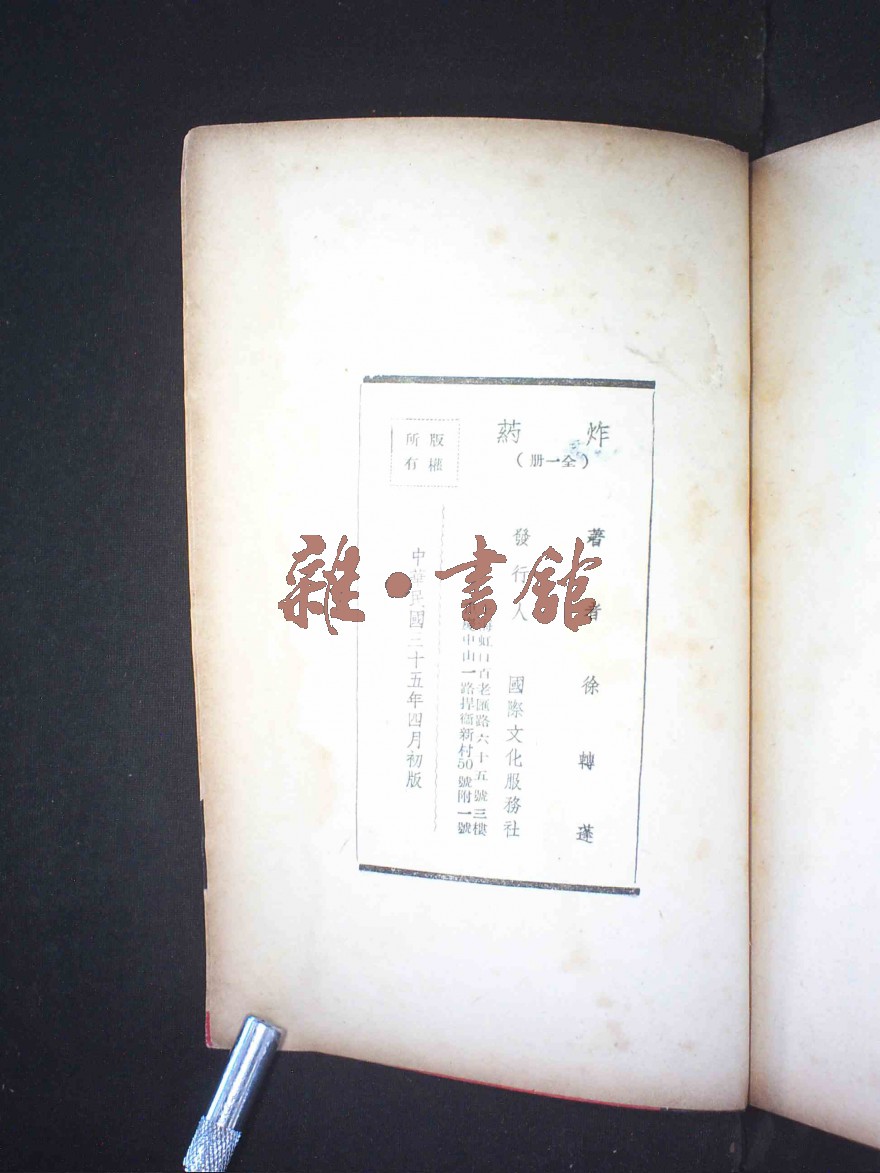 炸葯
(全一册)
著者 徐轉蓬
發行人 國際文化服務社
海虹口百老匯路六十五號三樓
中山一路捍衛新村50號附一號
中華民國三十五年四月初版
版權
所有
雜•書館